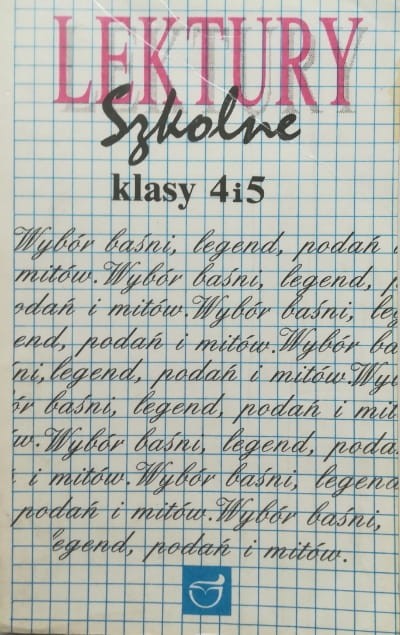 LEKTURY
Szkolne
klasy 4 i 5
Wybór baśni, legend, podań i
mitów. Wybór baśni, legend, p
odań i mitów. Wybór baśni, leg
end, podań i mitów. Wybór ba
ni, legend, podań i mitów. Wyb
ór baśni, legend, podań i mit
ów. Wybór baśni, legend, poda
i mitów. Wybór baśni, legend
podań i mitów. Wybór baśni,
legend, podań i mitów.